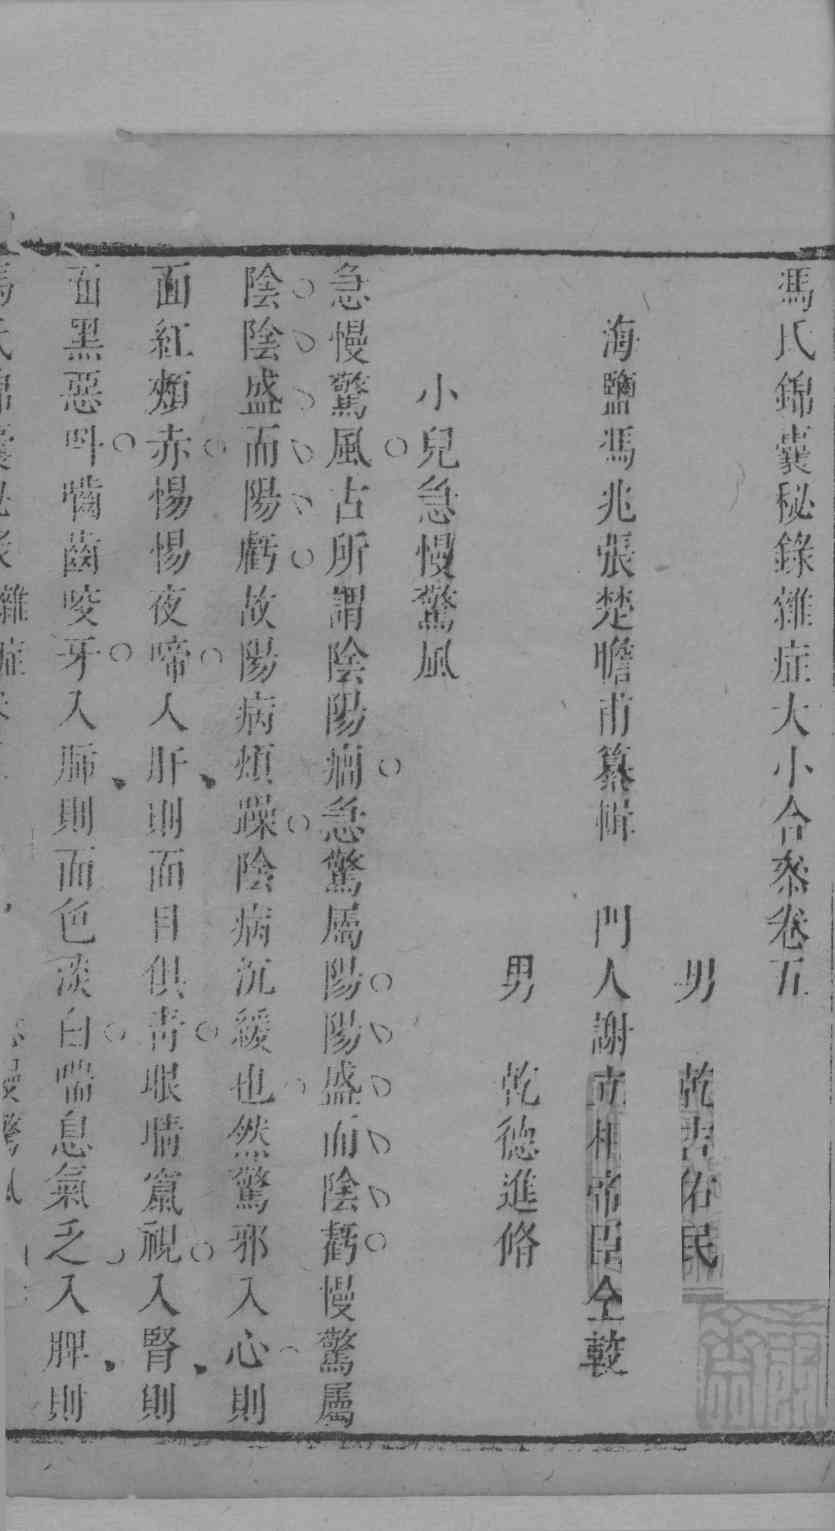 馮氏錦囊秘錄雜症大小合叅卷五
男　乾吉佑民
海鹽馮兆張楚瞻甫纂輯　門人謝立相帝臣仝較
男　乾德進脩
小兒急慢驚風
急慢驚風古所謂陰陽癎急驚屬陽陽盛而陰虧慢驚屬
陰陰盛而陽虧故陽病煩躁陰病沉緩也然驚邪入心則
面紅頰赤惕惕夜啼入肝則面目俱青眼睛竄視入腎則
面黑惡呌嚙齒咬牙入肺則面色淡白喘息氣乏入脾則